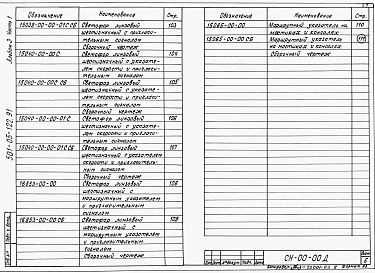 Обозначение Наименование Стр.
15039-00-00-01СБ Светофор линзовый 103
шестизначный с пригласи-
тельным сигналом
Сборочный чертеж
15040-00-00 Светофор линзовый 104
шестизначный с указате-
лем скорости и пригласи-
тельным сигналом
15040-00-00СБ Светофор линзовый 105
шестизначный с указате-
лем скорости и пригласи-
тельным сигналом
Сборочный чертеж
15040-00-00-01 Светофор линзовый 106
шестизначный с указате-
лем скорости и пригласи-
тельным сигналом
15040-00-00-01СБ Светофор линзовый 107
шестизначный с указателем
скорости и пригласитель-
ным сигналом
Сборочный чертеж
16953-00-00 Светофор линзовый 108
шестизначный с
маршрутным указателем
и пригласительным
сигналом
16953-00-00 СБ Светофор линзовый 109
шестизначный с
маршрутным указателем
и пригласительным
сигналом
Сборочный чертеж
Обозначение Наименование Стр.
15065-00-00 Маршрутный указатель на 110
мостиках и консолях
15065-00-00 СБ Маршрутный указатель 111
на мостиках и консолях
Сборочный чертеж
Альбом 2 Часть 1
501-05-122.91
СН-00-00 Д
Лист
6